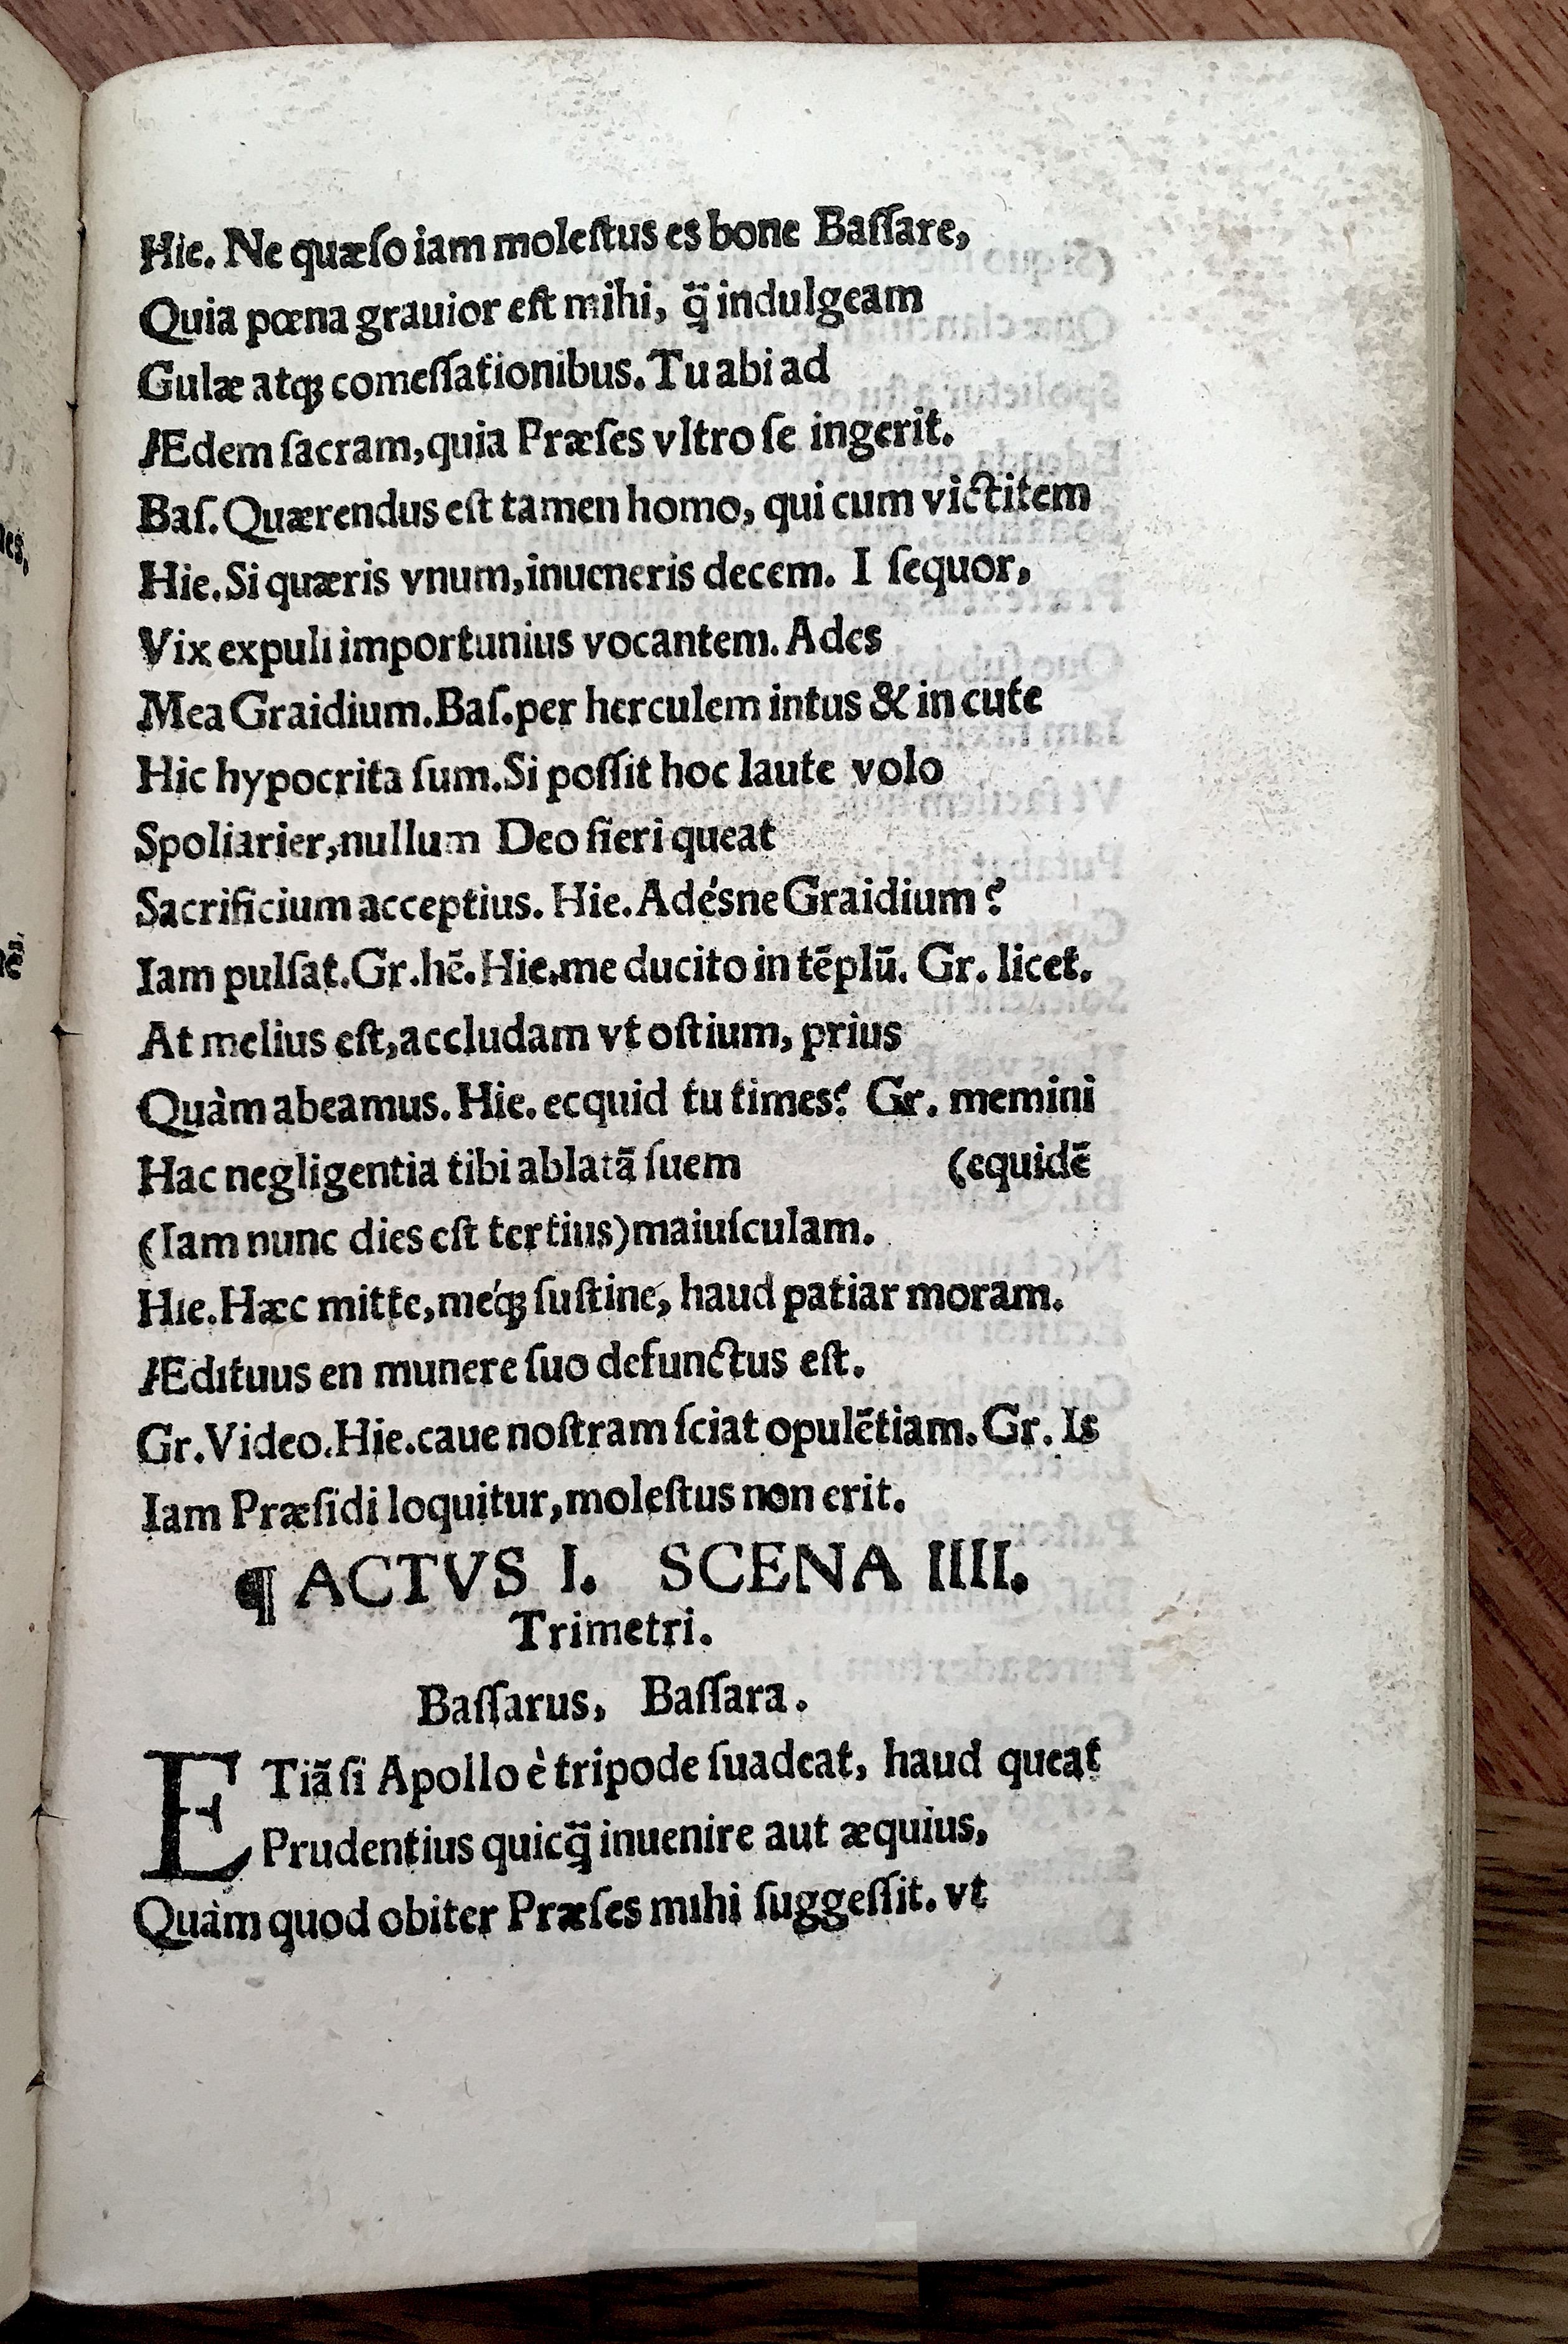 Hie. Ne quæſo iam moleſtus es bone Baſſare,
Quia pœna grauior eſt mihi, q̃ indulgeam
Gulæ atq; comeſſationibus. Tu abi ad
Ædem ſacram, quia Præſes vltro ſe ingerit.
Baſ. Quærendus eſt tamen homo, qui cum victitem
Hie. Si quæris vnum, inueneris decem. I ſequor,
Vix expuli importunius vocantem. Ades
Mea Graidium. Baſ. per herculem intus & in cute
Hic hypocrita ſum. Si poſſit hoc laute volo
Spoliarier, nullum Deo fieri queat
Sacrificium acceptius. Hie. Adésne Graidium?
Iam pulſat. Gr. hẽ. Hie. me ducito in tẽplũ. Gr. licet.
At melius eſt, accludam vt oſtium, prius
Quàm abeamus. Hie. ecquid tu times? Gr. memini
Hac negligentia tibi ablatã ſuem (equidẽ
(Iam nunc dies eſt tertius) maiuſculam.
Hie. Hæc mitte, méq; ſuſtine, haud patiar moram.
Ædituus en munere ſuo defunctus eſt.
Gr. Video. Hie. caue noſtram ſciat opulẽtiam. Gr. Is
Iam Præſidi loquitur, moleſtus non erit.
¶ ACTVS I. SCENA IIII.
Trimetri.
Baſſarus, Baſſara.
ETiã ſi Apollo è tripode ſuadeat, haud queat
Prudentius quicq̃ inuenire aut æquius,
Quàm quod obiter Præſes mihi ſuggeſſit. vt